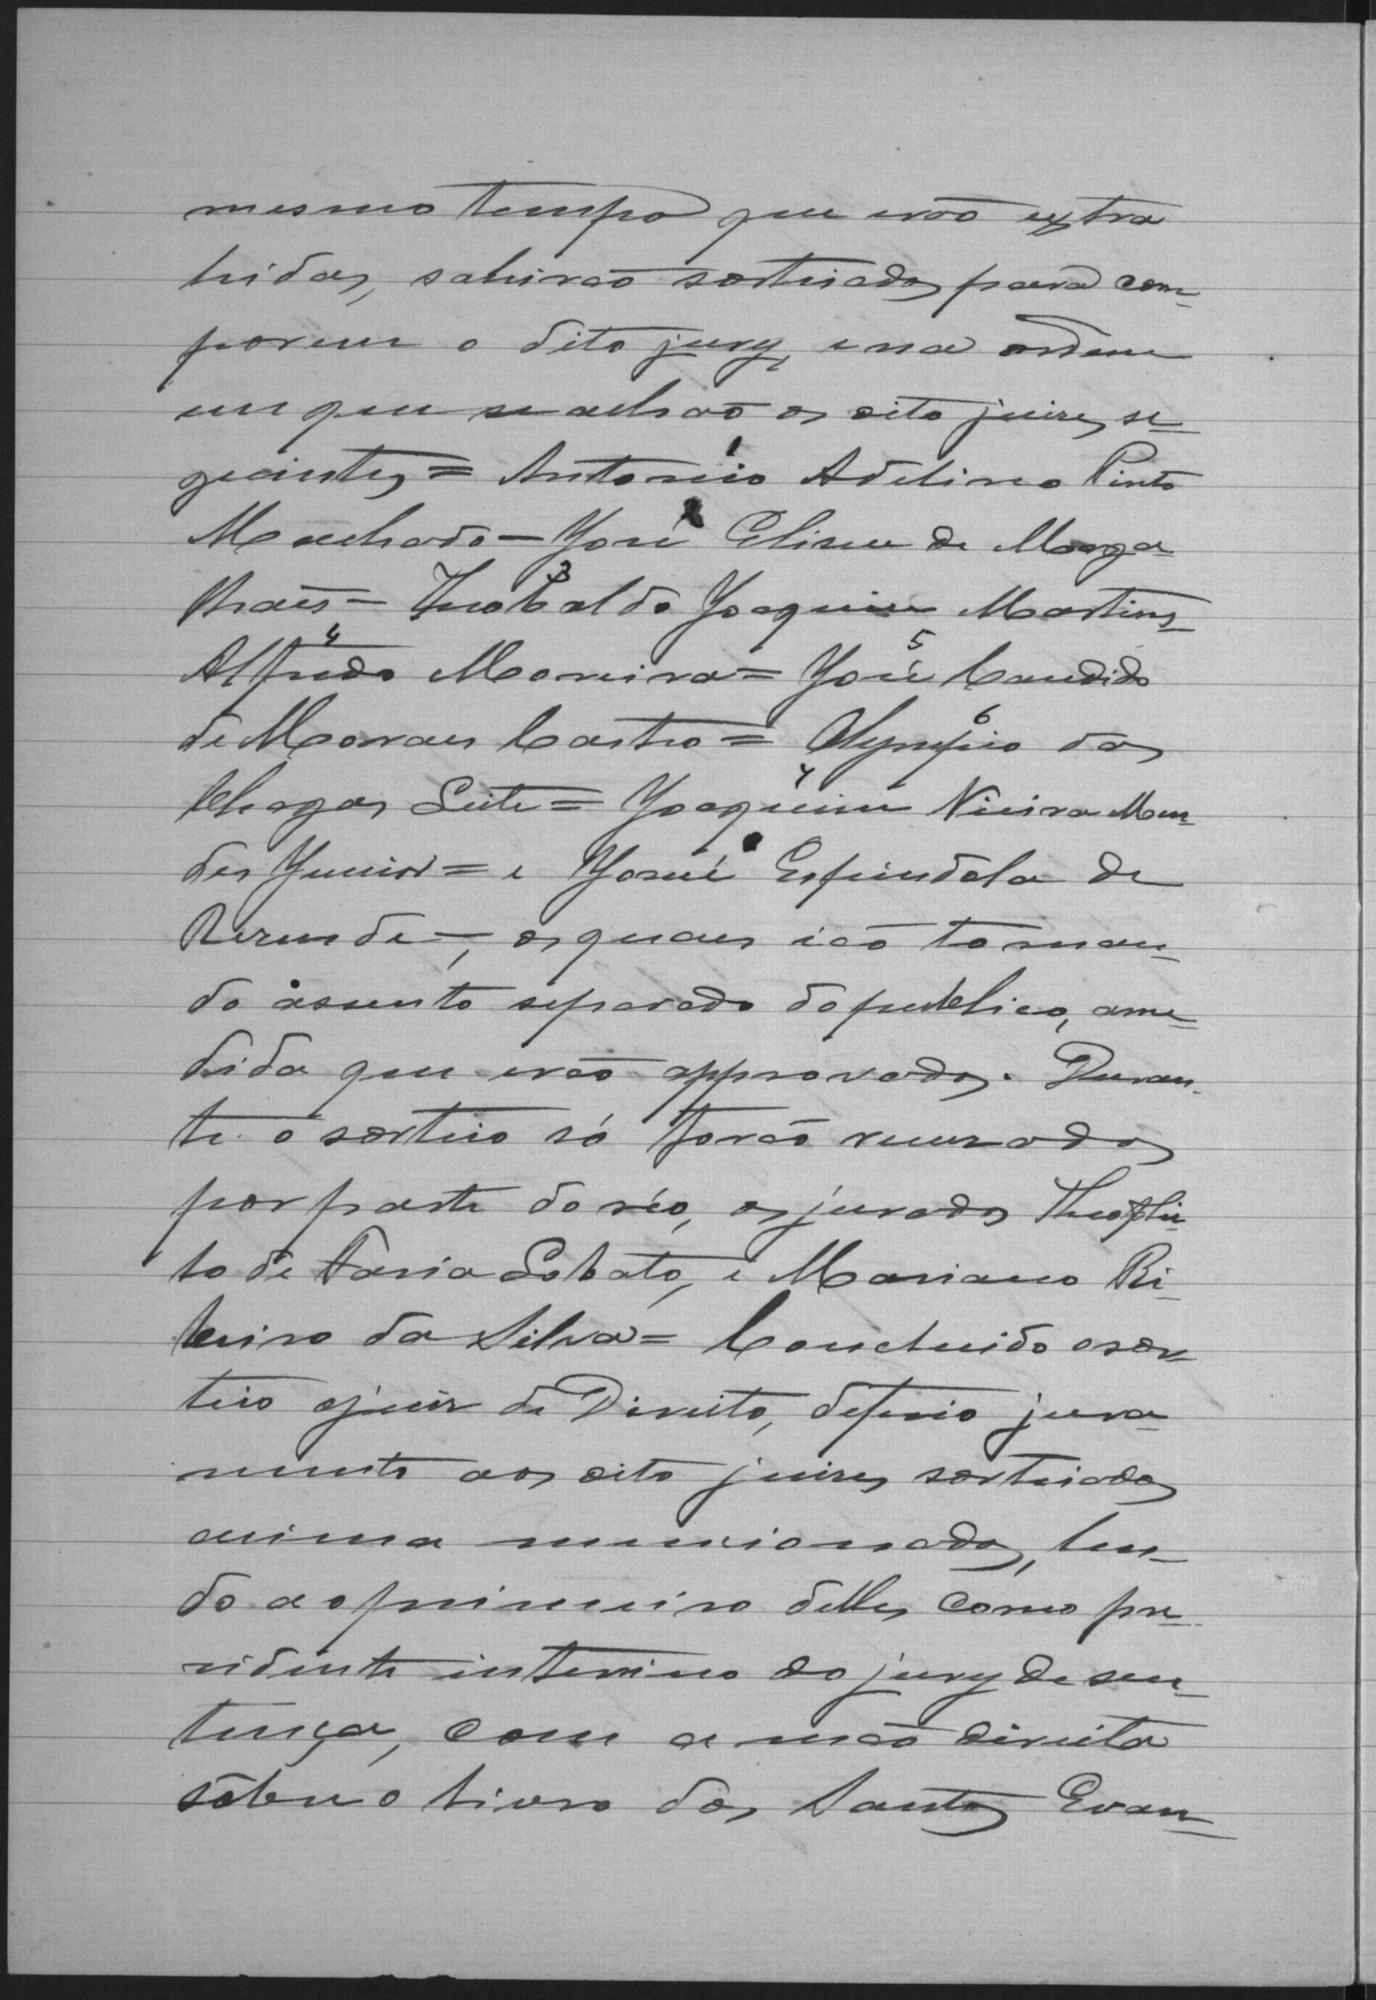 mesmo tempo que erão extra
hidas, sahirão sorteiados para com-
porem o dito jury, e na ordem
em que se achão os oito juizes se-
guintes = Antonio Adelino Pinto
1
Machado - José Eliseu de Maga
2
lhaes - Theobaldo Joaquim Martins -
3
Alfredo Moreira = José Candido
4 5
de Moraes Castro = Olympio das
6
Chagas Leite = Joaquim Vieira Men-
7
des Junior = e Josué Espindola de
Rezende -, os quaes ião toman-
do assento separado do publico, a me-
dida que erão approvados. Duran-
te o sorteio só forão recusados
por parte do réo, os jurados Theophi
lo de Faria Lobato, e Mariano Ri-
beiro da Silva = Concluido o sor-
teio o juiz de Direito, deferio jura-
mento aos oito juizes sorteiados
acima mencionados, len-
do ao primeiro delles, como pre-
zidente interino do jury de sen-
tença, com a mão direita
sobre o livro dos Santos Evan-